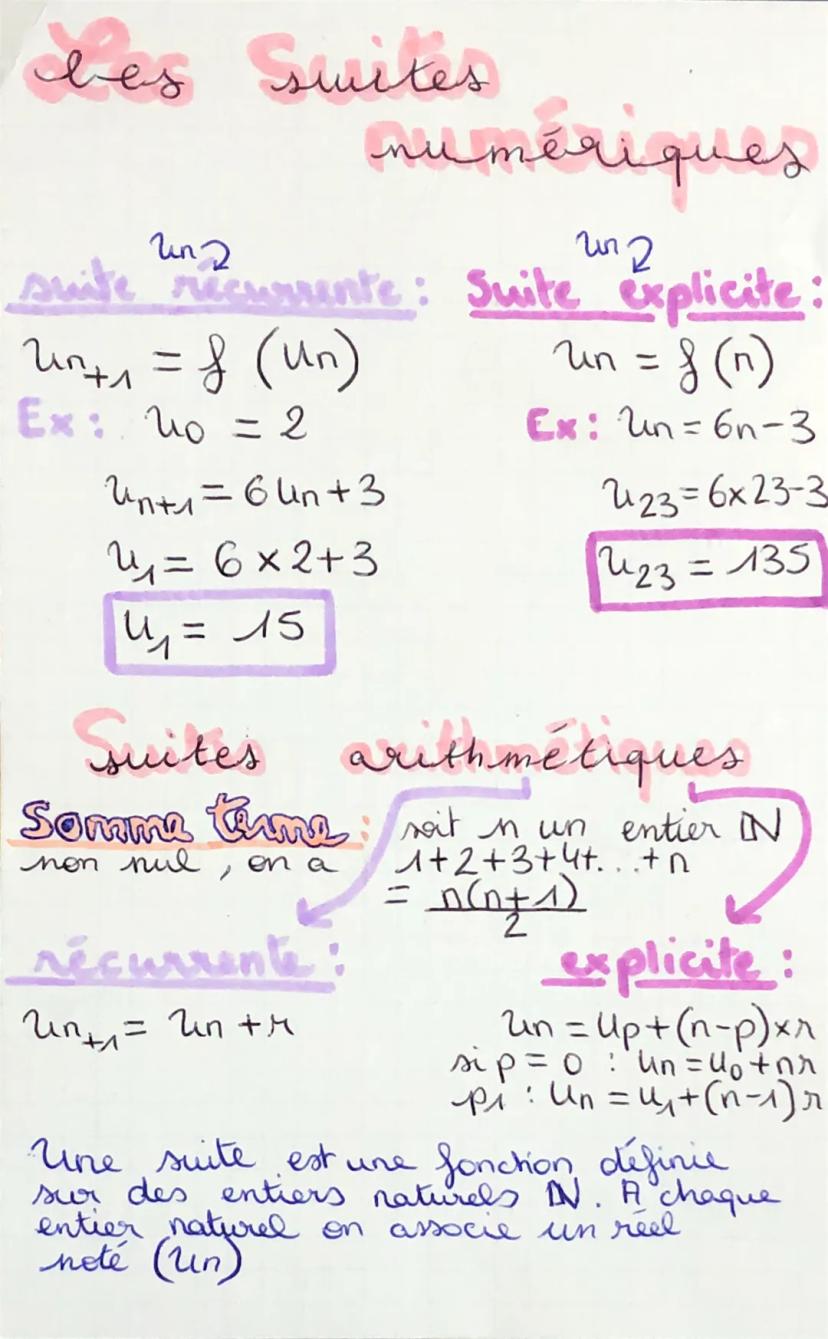 Les Suites
numériques
Un
suite récurrente :
Un+1 = f (Un)
Ex : U0 = 2
Un+1 = 6Un+3
U1 = 6 × 2+3
U1 = 15
Un
Suite explicite :
Un = f(n)
Ex : Un = 6n-3
U23 = 6×23-3
U23 = 135
Suites arithmétiques
Somme terme : soit n un entier ℕ
non nul, on a 1+2+3+4+...+n
= n(n+1)
2
récurrente :
Un+1 = Un +r
explicite :
Un = Up+(n-p)×r
si p = 0 : Un = U0+nr
p1 : Un = U1+(n-1)r
Une suite est une fonction définie
sur des entiers naturels ℕ. A chaque
entier naturel on associe un réel
noté (Un)